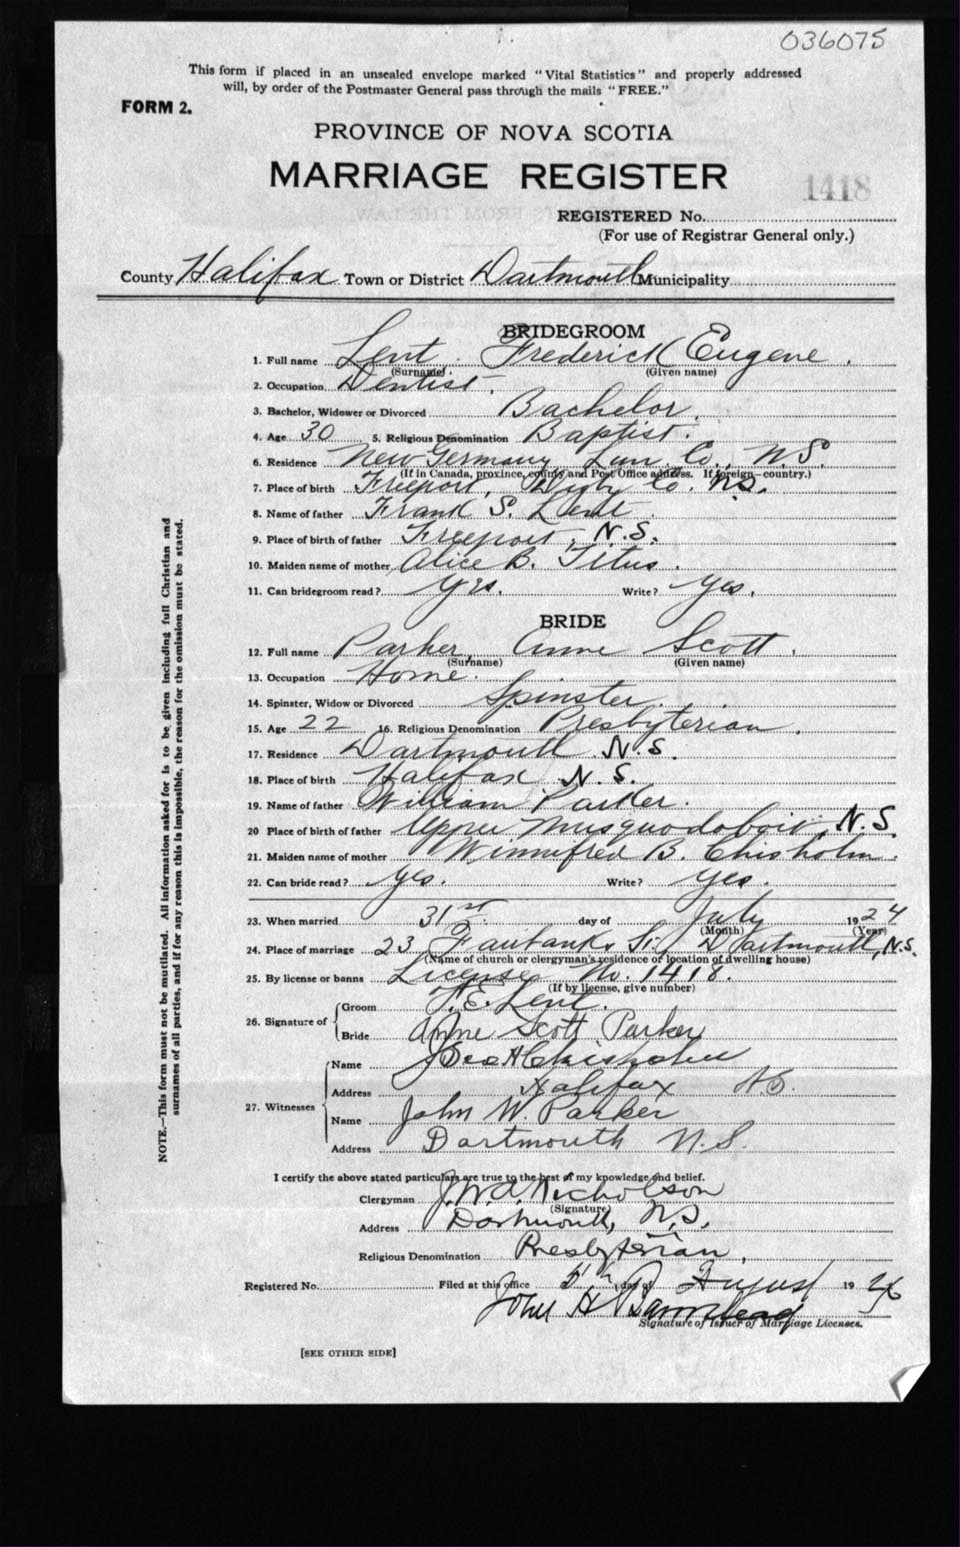 036075
This form if placed in an unsealed envelope marked "Vital Statistics" and properly addressed
will, by order of the Postmaster General pass through the mails "FREE."
FORM 2.
PROVINCE OF NOVA SCOTIA
MARRIAGE REGISTER
1418
REGISTERED No.
(For use of Registrar General only.)
County Halifax Town or District Dartmouth Municipality
BRIDEGROOM
1. Full name Lent. Frederick Eugene.
(Surname) (Given name)
2. Occupation Dentist.
3. Bachelor, Widower or Divorced Bachelor.
4. Age 30 5. Religious Denomination Baptist.
6. Residence New Germany Lun. Co., N.S.
(If in Canada, province, county and Post Office address. If foreign—country.)
7. Place of birth Freeport, Digby Co. N.S.
8. Name of father Frank S. Lent.
9. Place of birth of father Freeport, N.S.
10. Maiden name of mother Alice B. Titus.
11. Can bridegroom read? Yes. Write? Yes.
BRIDE
12. Full name Parker, Anne Scott.
(Surname) (Given name)
13. Occupation Home.
14. Spinster, Widow or Divorced Spinster.
15. Age 22 16. Religious Denomination Presbyterian.
17. Residence Dartmouth N.S.
18. Place of birth Halifax N.S.
19. Name of father William Parker.
20 Place of birth of father Upper Musquodoboit, N.S.
21. Maiden name of mother Winnifred B. Chisholm.
22. Can bride read? Yes. Write? Yes.
23. When married 31st day of July 1924
(Month) (Year)
24. Place of marriage 23 Fairbanks St. Dartmouth, N.S.
(Name of church or clergyman's residence or location of dwelling house)
25. By license or banns License No. 1418.
(If by license, give number)
26. Signature of Groom F. E. Lent.
Bride Anne Scott Parker
27. Witnesses Name Geo A Chisholm
Address Halifax NS.
Name John W. Parker
Address Dartmouth N.S.
I certify the above stated particulars are true to the best of my knowledge and belief.
Clergyman J.W.A. Nicholson
(Signature)
Address Dartmouth, N.S.
Religious Denomination Presbyterian.
Registered No. Filed at this office 5th day of August 19
John H
Signature of Issuer of Marriage Licenses.
[SEE OTHER SIDE]
NOTE.—This form must not be mutilated. All information asked for is to be given including full Christian and
surnames of all parties, and if for any reason this is impossible, the reason for the omission must be stated.